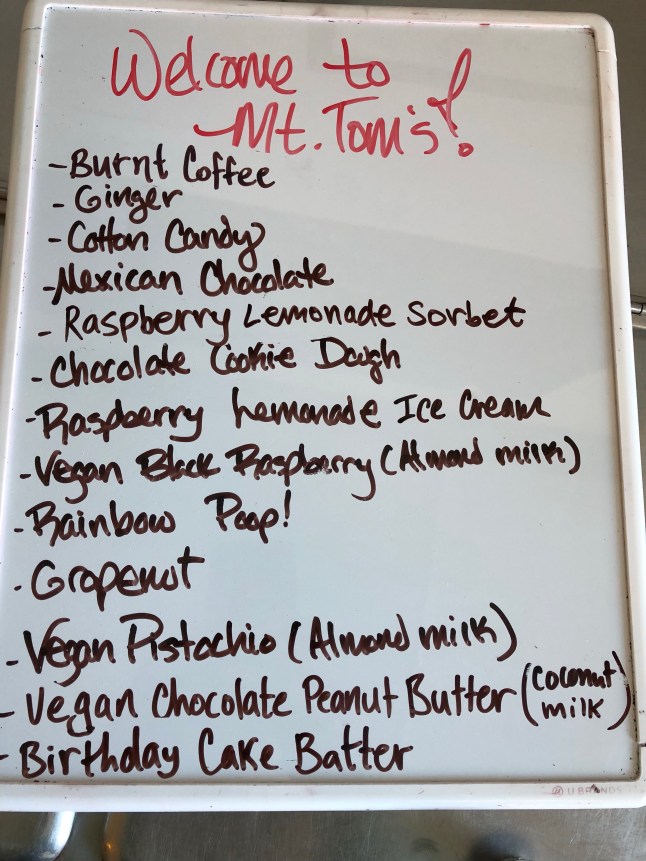 Welcome to
Mt. Tom's!
-Burnt Coffee
- Ginger
- Cotton Candy
-Mexican Chocolate
- Raspberry Lemonade Sorbet
- Chocolate Cookie Dough
-Raspberry Lemonade Ice Cream
-Vegan Black Raspberry (Almond milk)
-Rainbow Poop!
-Grapenut
-Vegan Pistachio (Almond milk)
-Vegan Chocolate Peanut Butter (coconut milk)
-Birthday Cake Batter
U BRANDS